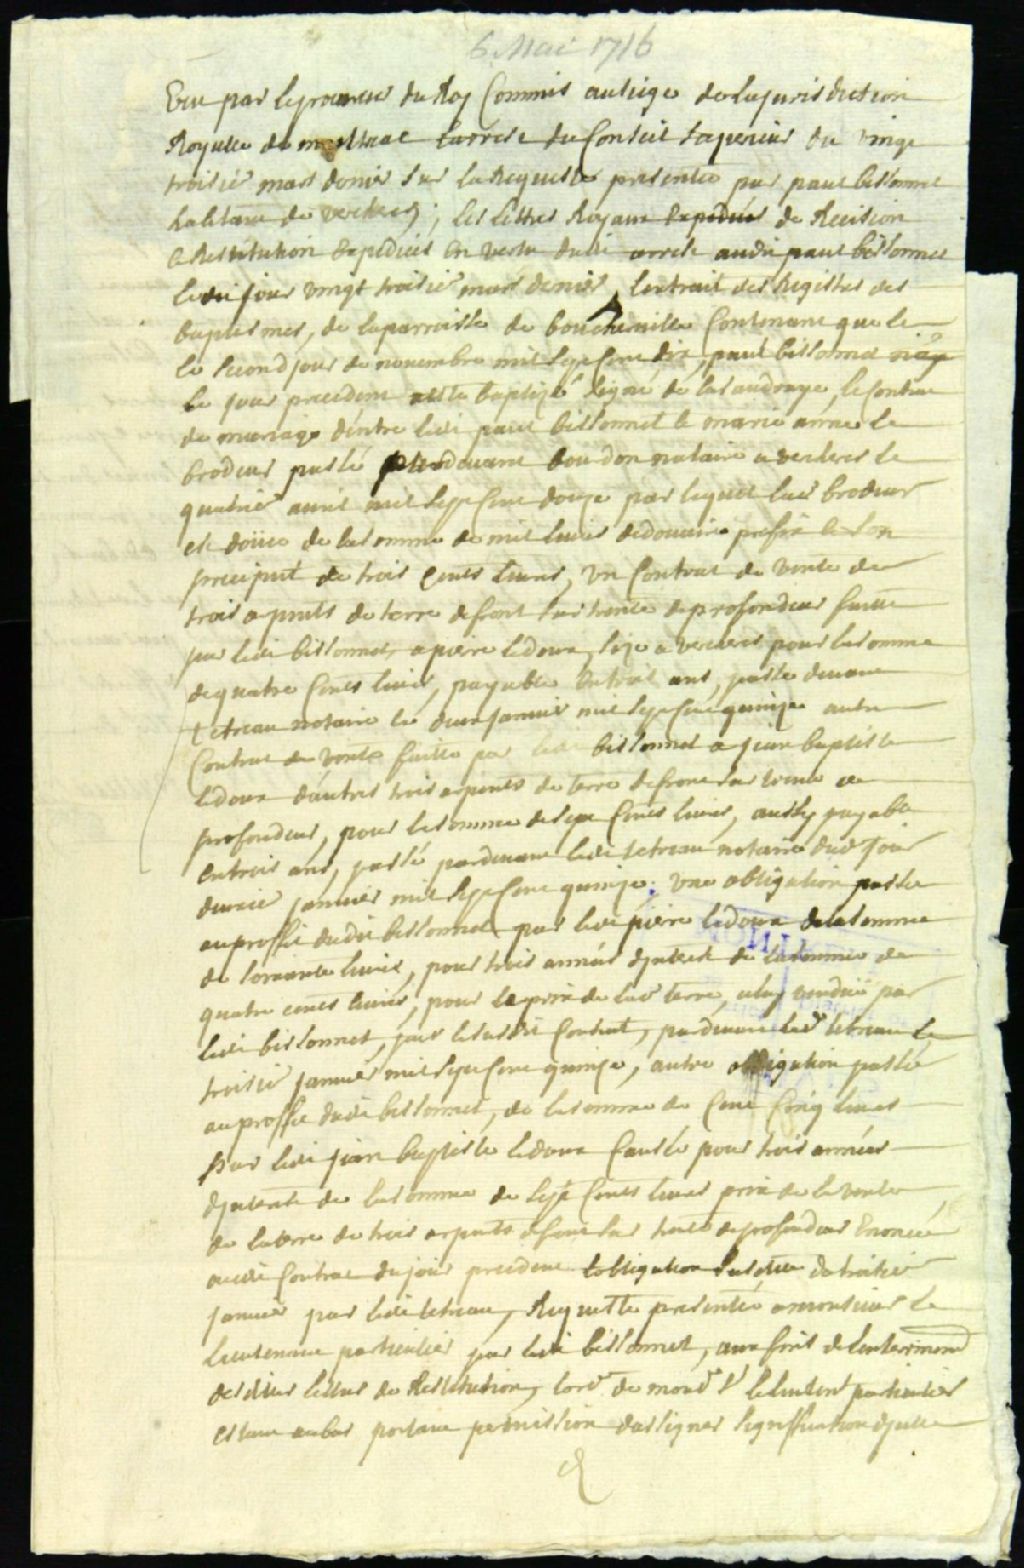 6 Mai 1716
Veu par le procureur du Roy Commis au siege de la jurisdiction
Royalle de montreal larrest du Conseil Superieur du vingt
troisie mars dernier sur la Requeste presentée par paul bissonnet
habitant de vercheres; les lettres Royaux Expediées de Recision
& Restitution Expediées en vertu dudit arrest audit paul bissonnet
ledit jour vingt troisie mars dernier, lextrait des Registres des
baptesmes, de la parroisse de boucherville Contenant que le
le second jour de novembre mil sept cent dix, paul bissonnet
le jour precedent a esté baptizé signé de la saudraye, le Contrat
de mariage d'entre ledit paul bissonnet & marie anne le
brodeur passé pardevant bourdon notaire a vercheres le
quatrie avril mil sept cent douze par lequel lad brodeur
est doüée de la somme de mil livres de douaire prefix & son
preciput de trois cents livres, un Contrat de vente de
trois arpents de terre de front sur trente de profondeur faitte
par ledit bissonnet a pierre ledoux, size a vercheres pour la somme
de quatre cents livres, payable en trois ans, passé devant
tetreau notaire le deux janvier mil sept cent quinze autre
Contrat de vente faitte par ledit bissonnet a jean baptiste
ledoux d'autres trois arpents de terre de front sur trente de
profondeur, pour la somme de sept cents livres, aussy payable
en trois ans, passé pardevant ledit tetreau notaire dud jour
deuxie janvier mil sept cent quinze; une obligation passée
au proffit dudit bissonnet par ledit pierre ledoux de la somme
de soixante livres, pour trois années d'interest de la somme de
quatre cents livres, pour le prix de lad terre, a luy vendüe par
ledit bissonnet, par le susdit Contrat, pardevant led tetreau le
troisie janvier mil sept cent quinze, autre obligation passée
au proffit dudit bissonnet, de la somme de Cent Cinq livres
Par ledit jean baptiste ledoux Causée pour trois années
d'interest de la somme de sept cents livres prix de la vente
de la terre de trois arpents de front sur trente de profondeur Enoncée
audit Contrat du jour precedent lobligation susditte du troisie
janvier par ledit tetreau, Requeste presentée a monsieur le
Lieutenant particulier par ledit bissonnet, aux fins de lenterinement
desdittes lettres de Restitution, lord de mond Sr le Lieuten particulier
estant au bas portant permission d'assigner signiffication d'icelle